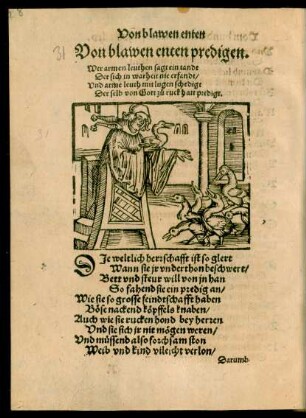 31
Von blawen enten
Von blawen enten predigen.
Wer armen leuthen sagt ein tande
Der sich in warheit nie erfande/
Und arme leuth mit lugen schedigt
Der selb von Gott zů ruck hatt predigt.
DJe weltlich herrschafft ist so glert
Wann sie jr underthon beschwert/
Bett und steur will von jn han
So fahend sie ein predig an/
Wie sie so grosse feindtschafft haben
Böse nackend köpffels knaben/
Auch wie sie rucken hond bey herren
Und sie sich jr nit mögen weren/
Und müssend also forchsam ston
Weib und kind vileicht verlon/
Darumb